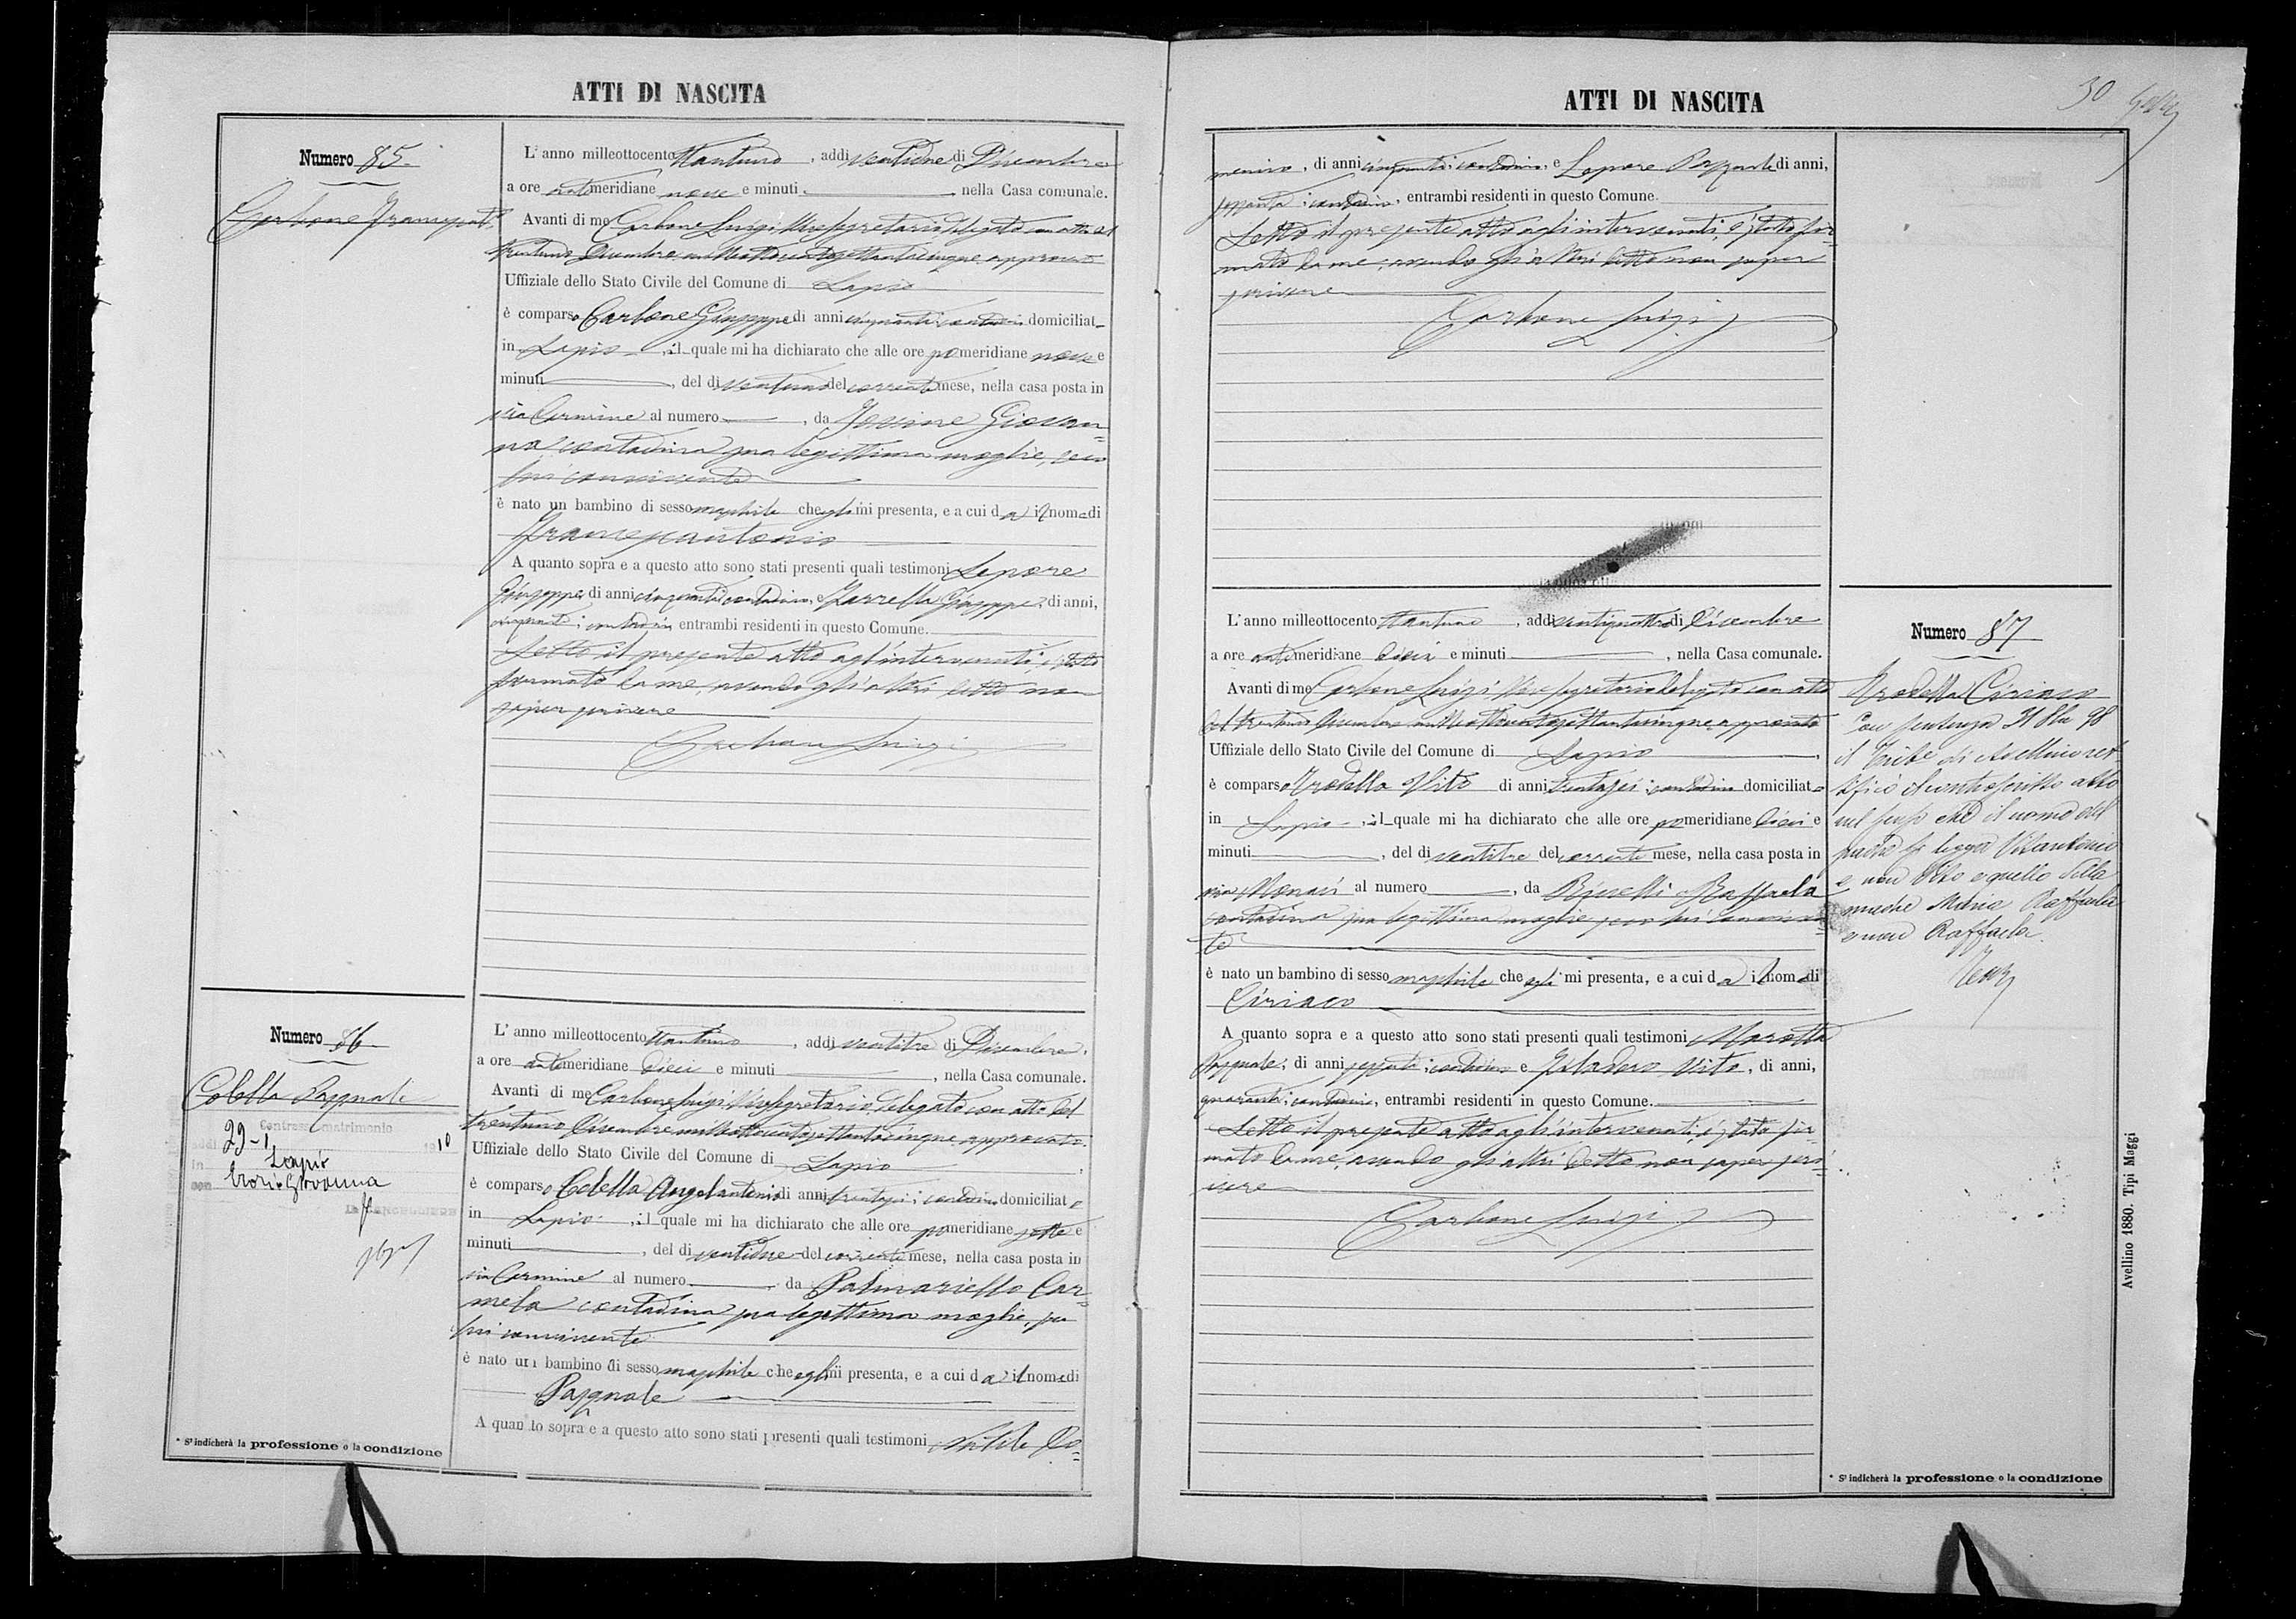 ATTI DI NASCITA
Numero 85.
Carbone Francesc
L'anno milleottocento ottantuno, addi ventidue di Dicembre
a ore antemeridiane nove e minuti , nella Casa comunale.
Avanti di me Carbone Luigi Vice Segretario delegato con atto del
trentuno Dicembre milleottocentosettantacinque approvato
Uffiziale dello Stato Civile del Comune di Lapio
è comparso Carbone Giuseppe di anni cinquanta contadino domiciliat
in Lapio , il quale mi ha dichiarato che alle ore pomeridiane nove e
minuti , del di ventuno del corrente mese, nella casa posta in
via Carmine al numero , da Iovine Giovan=
na contadina sua legittima moglie, seco
lui convivente
è nato un bambino di sesso maschile che egli mi presenta, e a cui da il nome di
Francescantonio
A quanto sopra e a questo atto sono stati presenti quali testimoni Lepore
Giuseppe, di anni cinquanta contadino, e Zarrella Giuseppe, di anni,
contadini entrambi residenti in questo Comune.
Letto il presente atto agl'intervenuti è stato
firmato da me, avendo gli altri detto non
saper scrivere
Carbone Luigi
Numero 86.
Colella Pasquale
Contrasse matrimonio
addi 29-1 1910
in Lapio
con Giovanna
L'anno milleottocento ottantuno, addi ventitre di Dicembre,
a ore antemeridiane dieci e minuti , nella Casa comunale.
Avanti di me Carbone Luigi Vice Segretario delegato con atto del
trentuno Dicembre milleottocentosettantacinque approvato
Uffiziale dello Stato Civile del Comune di Lapio
è comparso Colella Angelantonio di anni trentasei contadino domiciliato
in Lapio , il quale mi ha dichiarato che alle ore pomeridiane sette e
minuti , del di ventidue del corrente mese, nella casa posta in
via Carmine al numero da Palmariello Car=
mela contadina sua legittima moglie, seco
lui convivente
è nato un bambino di sesso maschile che egli mi presenta, e a cui da il nome di
Pasquale
A quanto sopra e a questo atto sono stati presenti quali testimoni Do=
* S'indicherà la professione o la condizione
ATTI DI NASCITA
30
menico, di anni cinquanta contadino, e Lepore Pasquale di anni,
sessanta contadino, entrambi residenti in questo Comune.
Letto il presente atto agli intervenuti, è stato fir=
mato da me, avendo gli altri detto non saper
scrivere
Carbone Luigi
L'anno milleottocento ottantuno, addi ventiquattro di Dicembre
a ore antemeridiane dieci e minuti , nella Casa comunale.
Avanti di me Carbone Luigi Vice Segretario delegato con atto
del trentuno Dicembre milleottocentosettantacinque approvato
Uffiziale dello Stato Civile del Comune di Lapio
è comparso Trodella Vito di anni trentasei contadino domiciliato
in Lapio , il quale mi ha dichiarato che alle ore pomeridiane dieci e
minuti , del di ventitre del corrente mese, nella casa posta in
via Monaci al numero , da Raffaela
contadina sua legittima moglie seco lui conviven=
te
è nato un bambino di sesso maschile che egli mi presenta, e a cui da il nome di
Ciriaco
A quanto sopra e a questo atto sono stati presenti quali testimoni Marotta
Pasquale, di anni sessanta contadino e Vito, di anni,
quaranta contadino, entrambi residenti in questo Comune.
Letto il presente atto agli intervenuti, è stato fir=
mato da me, avendo gli altri detto non saper scri=
vere
Carbone Luigi
Numero 87
Trodella Ciriaco
Con sentenza 98
il Trib.e di Avellino ret=
tificò il controscritto atto
nel senso che il nome del
padre si legga Vitantonio
e non Vito e quello della
madre Maria Raffaela
e non Raffaela.
* S'indicherà la professione o la condizione
Avellino 1880. Tipi Maggi